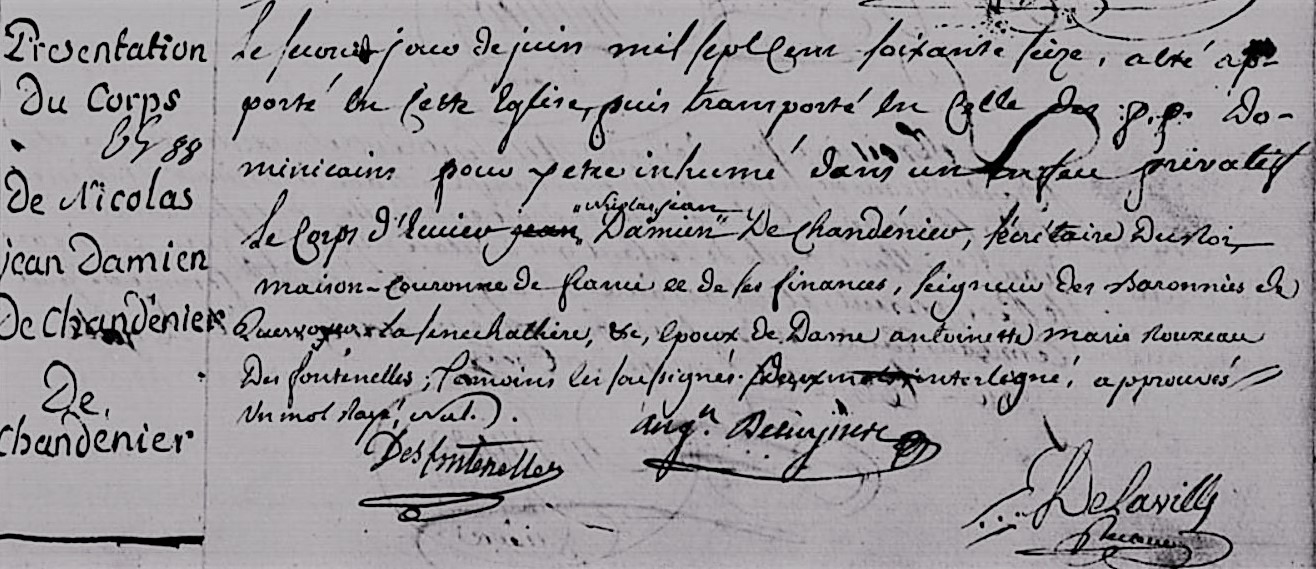 Presentation
Du Corps
De Nicolas
jean Damien
De Chandénier
De
Chandénier
Le second jour de juin mil sept cent soixante seize, a été ap-
porté en cette Eglise, puis transporté en celle des p.p. Do-
minicains pour y etre inhumé dans un privatif
"Nicolas jean
Le Corps d' jean Damien" De Chandénier, sécrétaire Du Roi,
maison-couronne de france et de ses finances, seigneur des Baronnies de
La senechathiere, &c, epoux de Dame antoinette marie Rouxeau
Des fontenelles; témoins les soussignés. Deux mots interlignés, approuvés
Un mot rayé, nul.
Desfontenelles
ang.n
Delaville